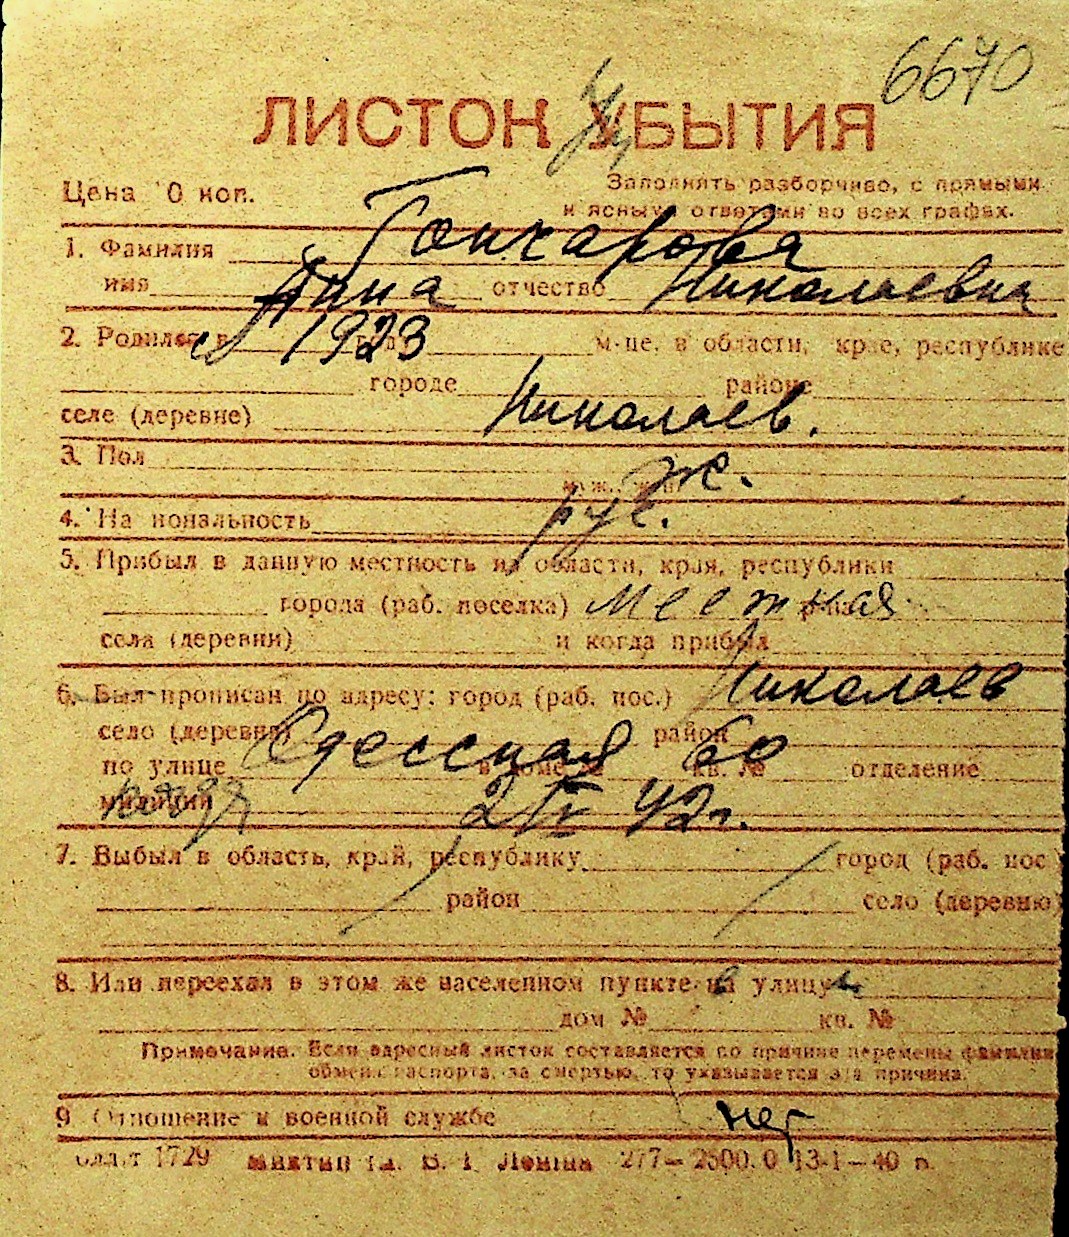 6670
ЛИСТОК УБЫТИЯ
Цена 10 коп.
Заполнять разборчиво, с прямыми
и ясными ответами во всех графах.
1. Фамилия Гончарова
имя Анна отчество Николаевна
2. Родился в 1923 году м-це, в области, крае, республике
городе районе
селе (деревне) Николаев.
3. Пол ж.
муж., жен.
4. Национальность рус.
5. Прибыл в данную местность из области, края, республики
города (раб. поселка) местная р-на
села (деревни) и когда прибыл
6. Был прописан по адресу: город (раб. пос.) Николаев
село (деревня) район
по улице Одесская в доме № 60 кв. № отделение
милиции 2 IV 42 г.
7. Выбыл в область, край, республику город (раб. пос
район село (деревню)
8. Или переехал в этом же населенном пункте на улицу
дом № кв. №
Примечание. Если адресный листок составляется по причине перемены фамилии
обмена паспорта, за смертью, то указывается эта причина.
9 Отношение к военной службе нет
1729 277—2500.0 13-1—40 г.